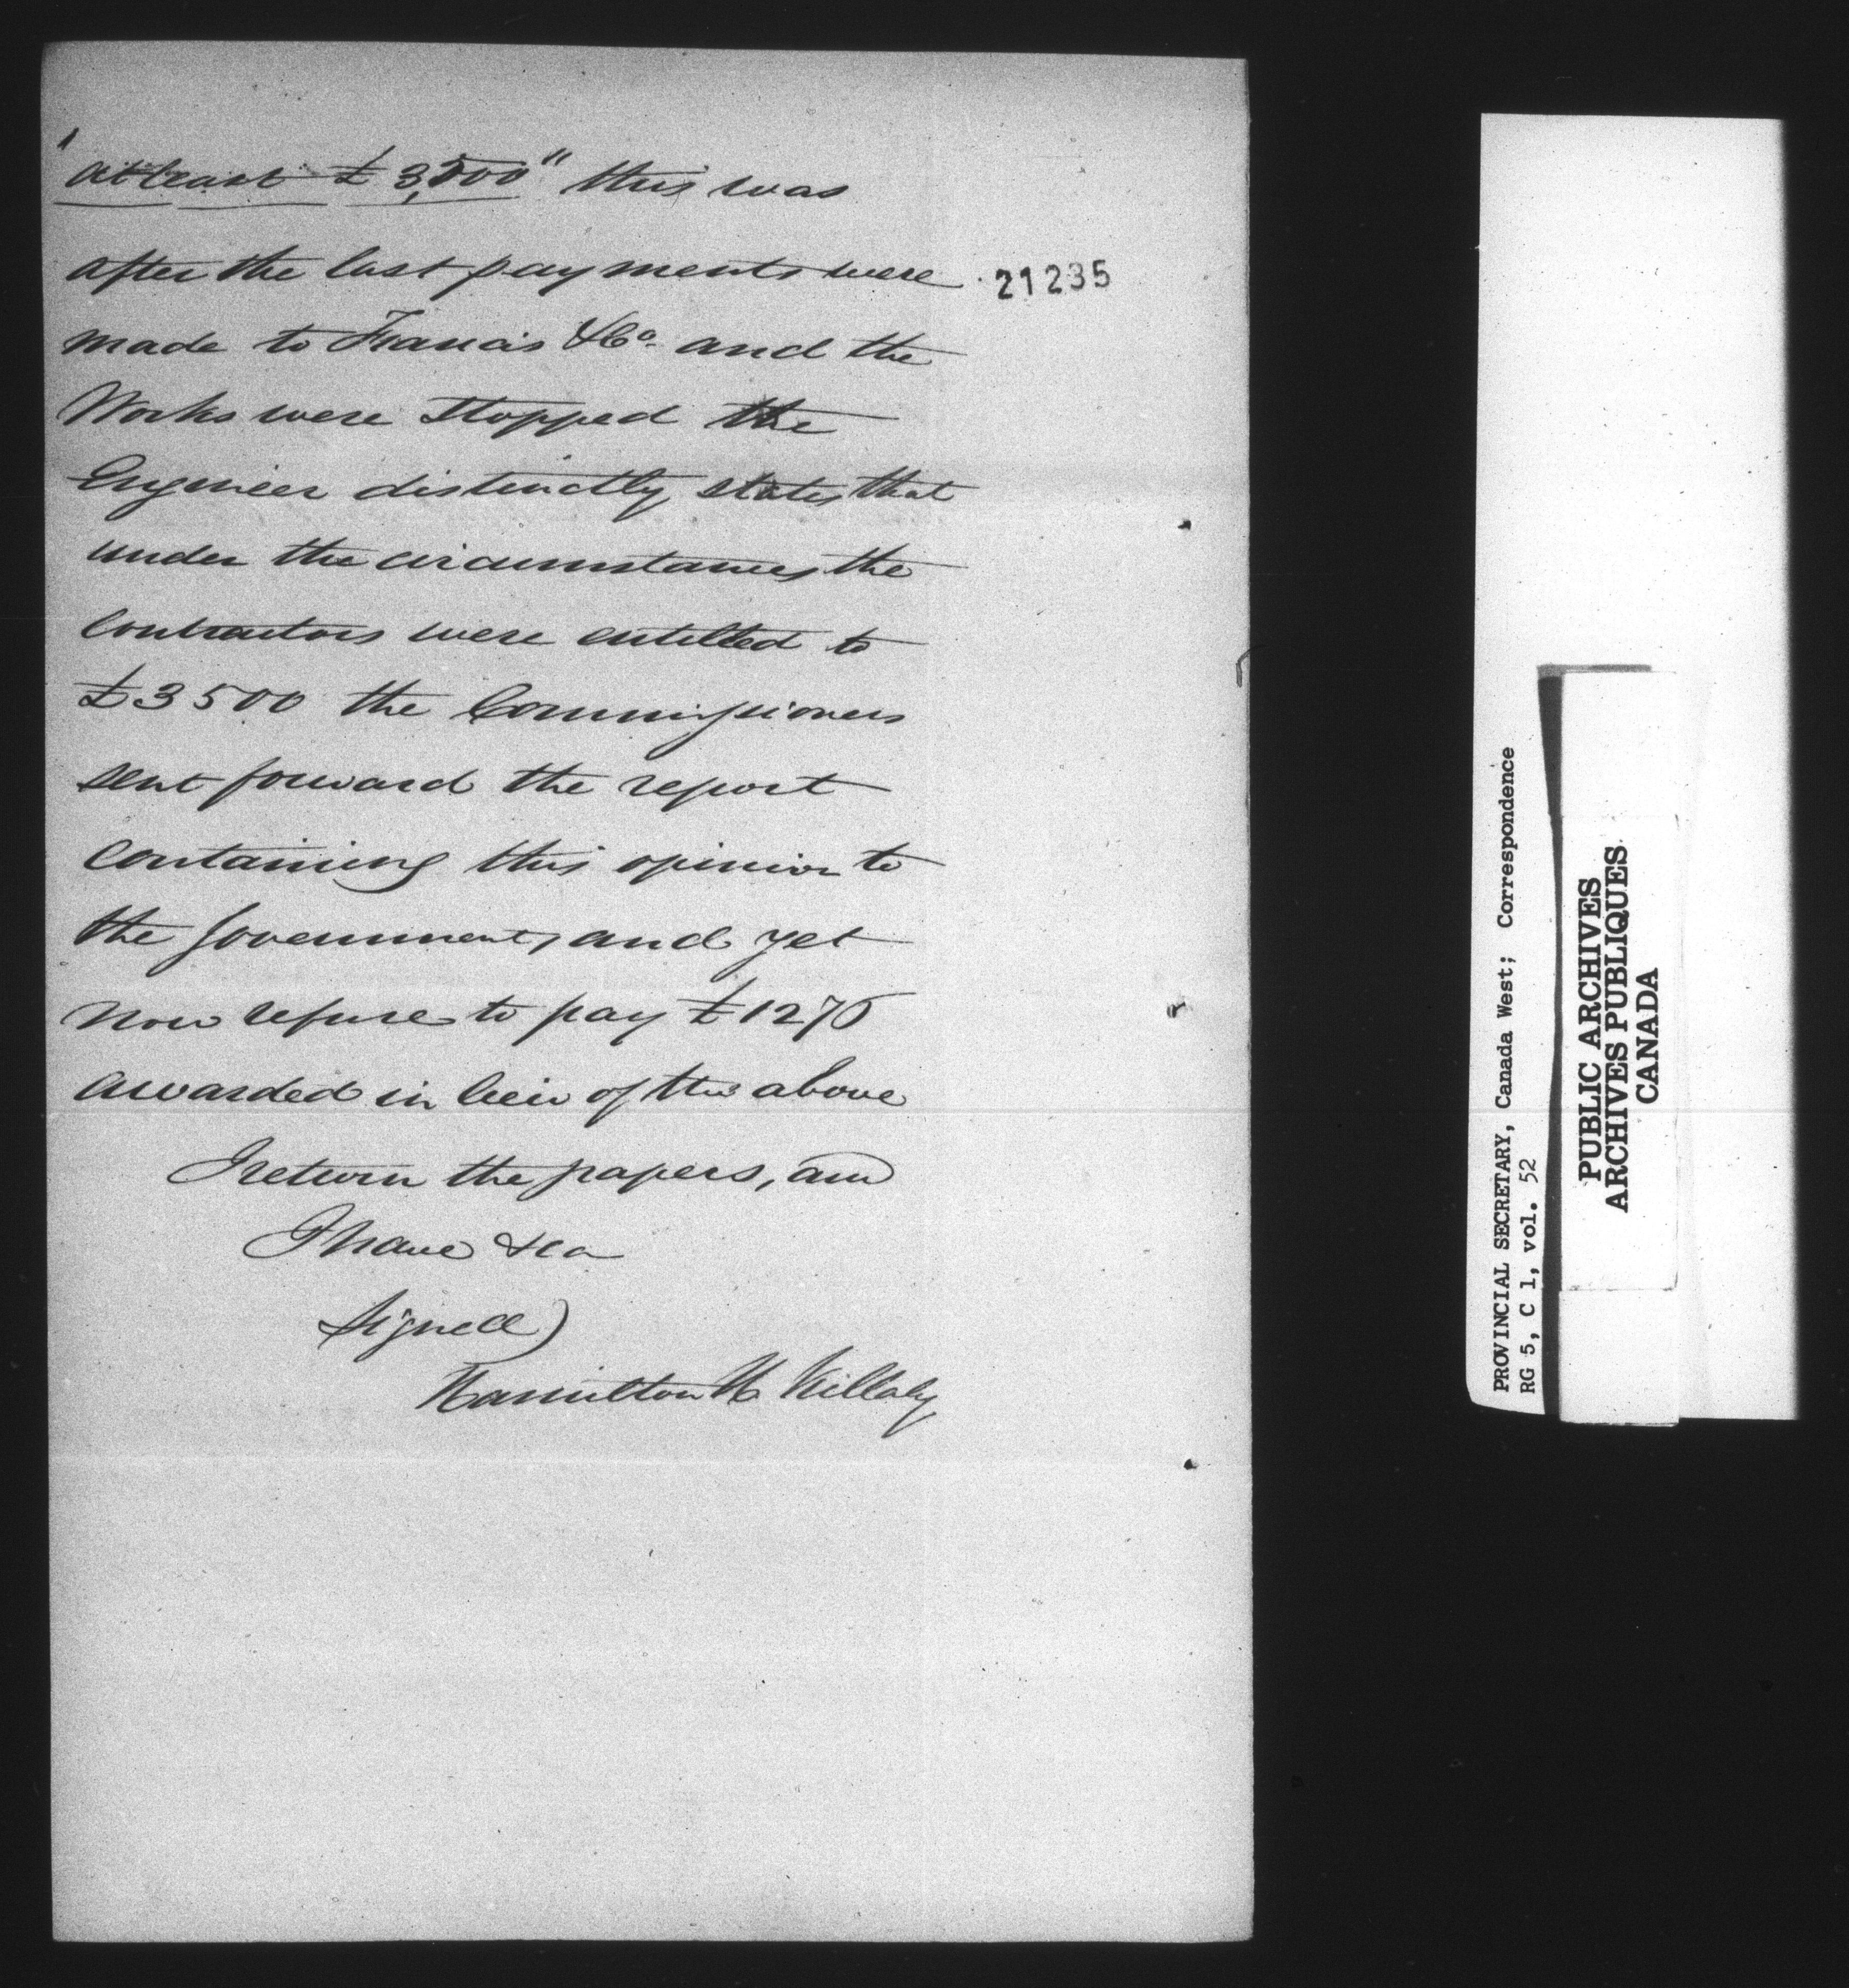 "at least £3,500" this was
after the last payments were
21235
made to Francis & Co. and the
Works were stopped the
Engineer distinctly states that
under the circumstances the
Contractors were entitled to
£3500 the Commissioners
sent forward the report
containing this opinion to
the Government, and yet
now refuse to pay £1275
awarded in lieu of the above
I return the papers, and
I have &ca
Signed)
Hamilton H Killaly
PROVINCIAL SECRETARY, Canada West; Correspondence
RG 5, C 1, vol. 52
PUBLIC ARCHIVES
ARCHIVES PUBLIQUES
CANADA